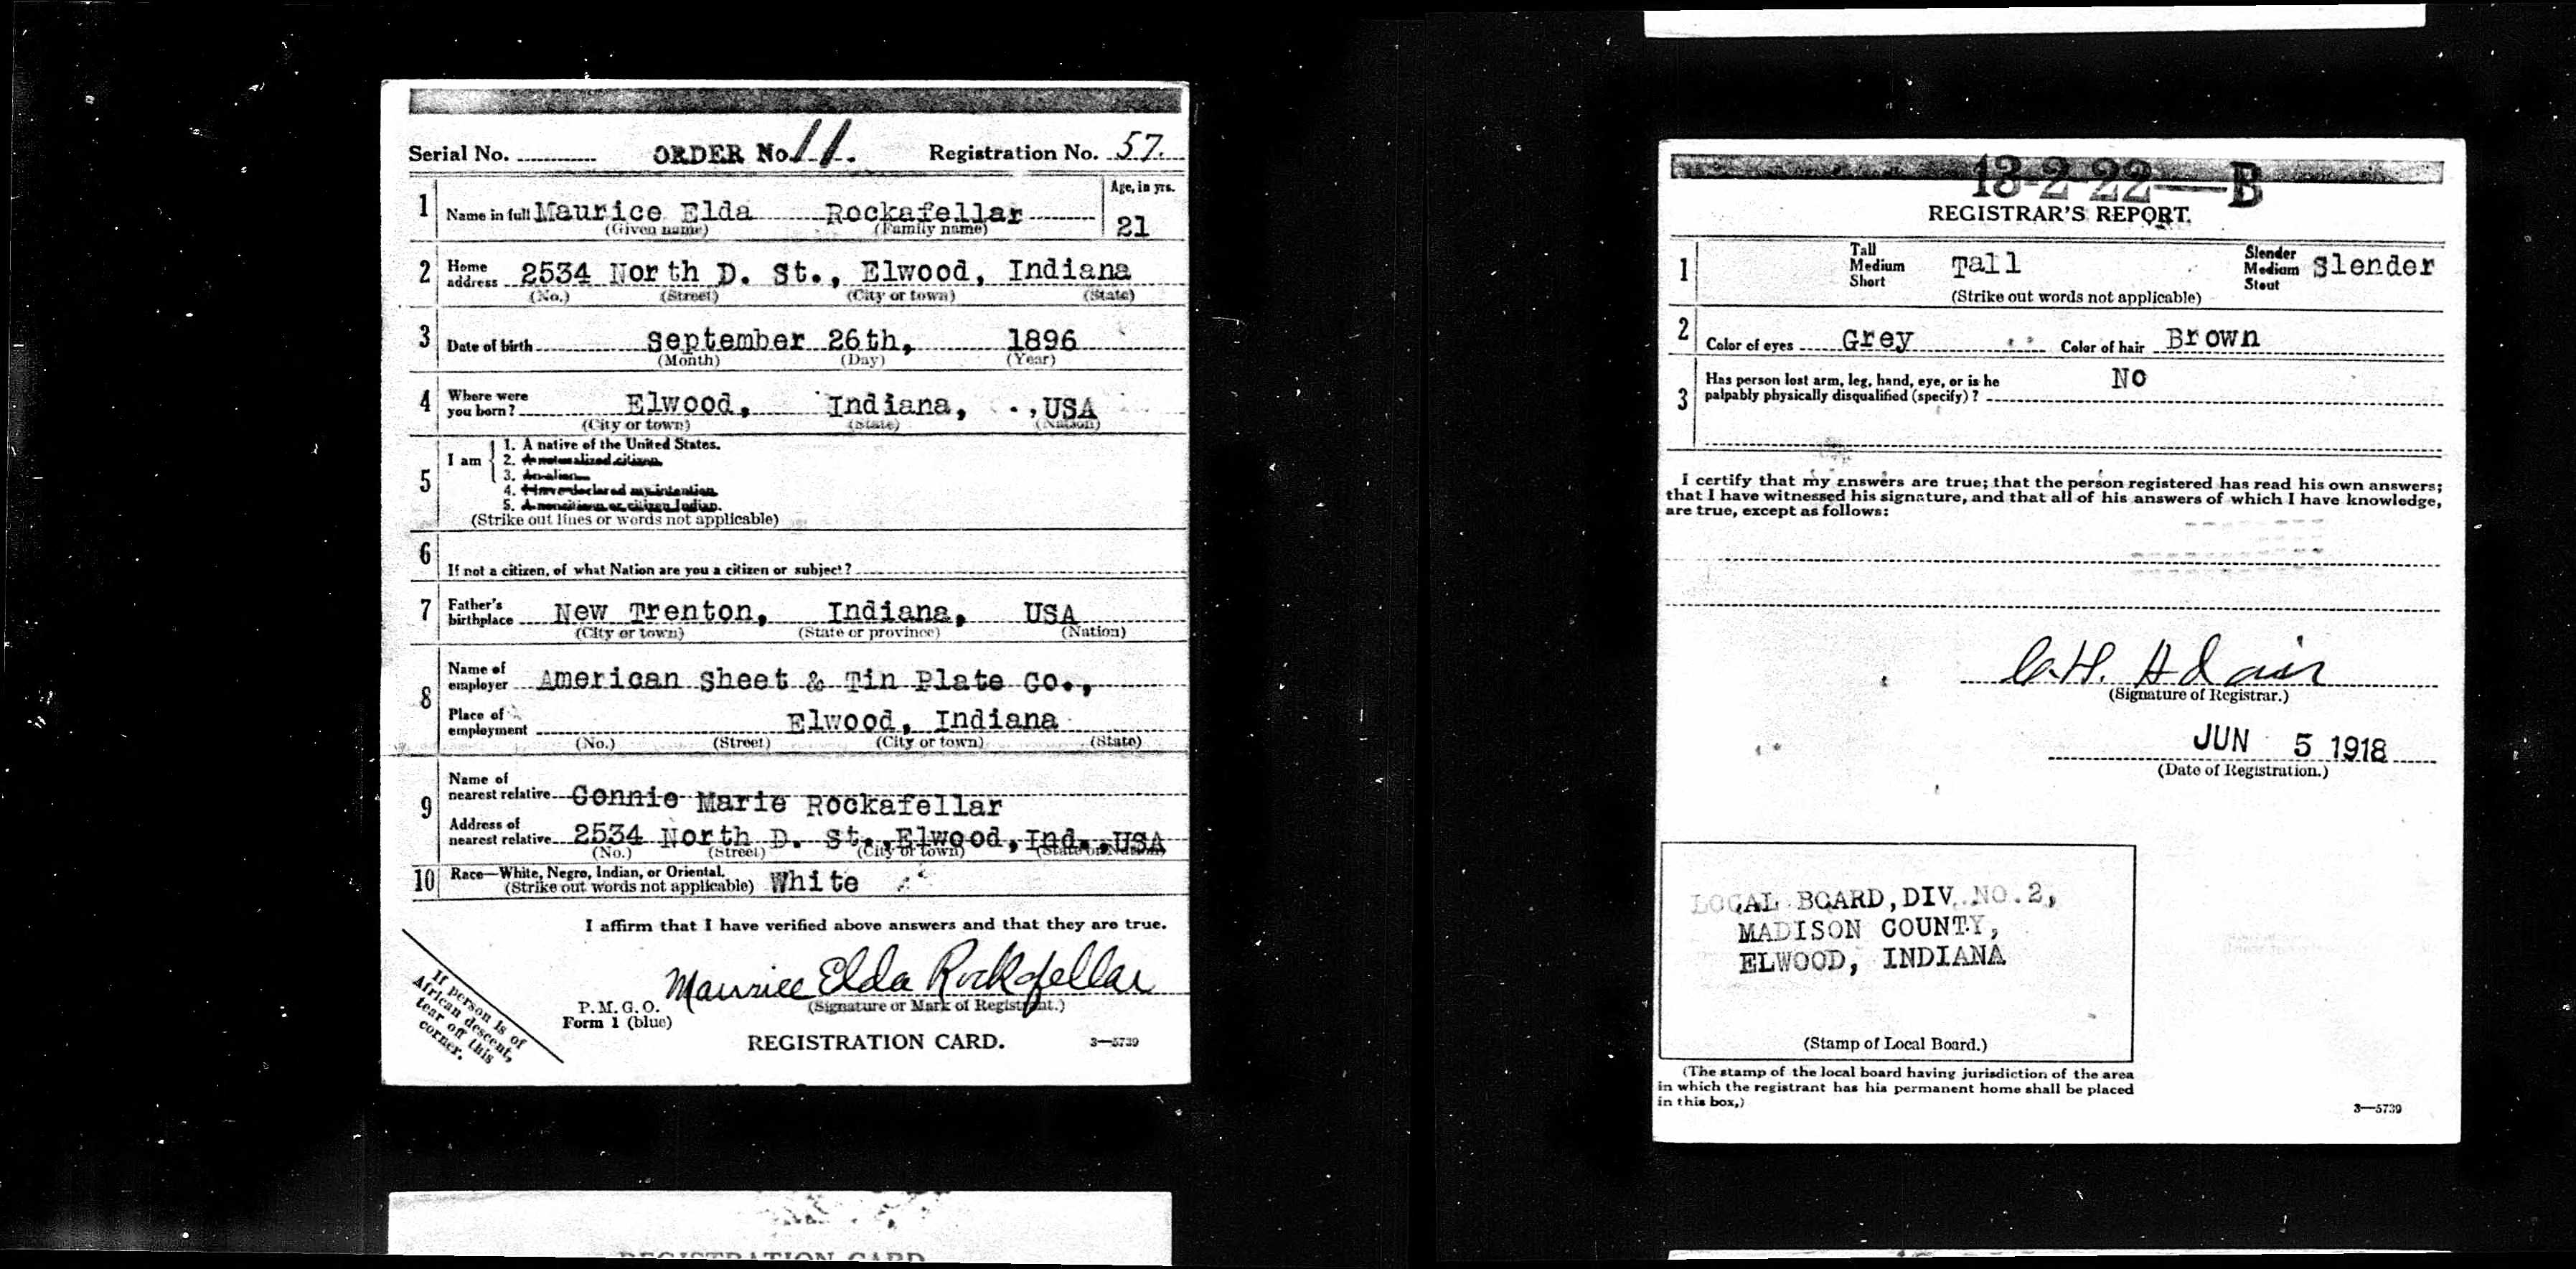 Serial No. ORDER No. 11. Registration No. 57.
1 Name in full Maurice Elda Rockafellar Age, in yrs.
(Given name) (Family name) 21
2 Home address 2534 North D. St., Elwood, Indiana
(No.) (Street) (City or town) (State)
3 Date of birth September 26th, 1896
(Month) (Day) (Year)
4 Where were you born? Elwood, Indiana, ., USA
(City or town) (State) (Nation)
5 I am 1. A native of the United States.
2. A naturalized citizen.
3. An alien.
4. I have declared my intention.
5. A noncitizen or citizen Indian.
(Strike out lines or words not applicable)
6 If not a citizen, of what Nation are you a citizen or subject?
7 Father's birthplace New Trenton, Indiana, USA
(City or town) (State or province) (Nation)
8 Name of employer American Sheet & Tin Plate Co.,
Place of employment Elwood, Indiana
(No.) (Street) (City or town) (State)
9 Name of nearest relative Connie Marie Rockafellar
Address of nearest relative 2534 North D. St., Elwood, Ind., USA
(No.) (Street) (City or town) (State or Nation)
10 Race—White, Negro, Indian, or Oriental.
(Strike out words not applicable) White
I affirm that I have verified above answers and that they are true.
Maurice Elda Rockafellar
P. M. G. O. (Signature or Mark of Registrant.)
Form 1 (blue)
REGISTRATION CARD. 3—5739
If person is of
African descent,
tear off this
corner.
REGISTRATION CARD
13-2-22—B
REGISTRAR'S REPORT.
1 Tall Medium Short Tall Slender Medium Stout Slender
(Strike out words not applicable)
2 Color of eyes Grey Color of hair Brown
3 Has person lost arm, leg, hand, eye, or is he No
palpably physically disqualified (specify)?
I certify that my answers are true; that the person registered has read his own answers;
that I have witnessed his signature, and that all of his answers of which I have knowledge,
are true, except as follows:
C.H. Adair
(Signature of Registrar.)
JUN 5 1918
(Date of Registration.)
LOCAL BOARD, DIV. NO. 2,
MADISON COUNTY,
ELWOOD, INDIANA
(Stamp of Local Board.)
(The stamp of the local board having jurisdiction of the area
in which the registrant has his permanent home shall be placed
in this box.)
3—5739